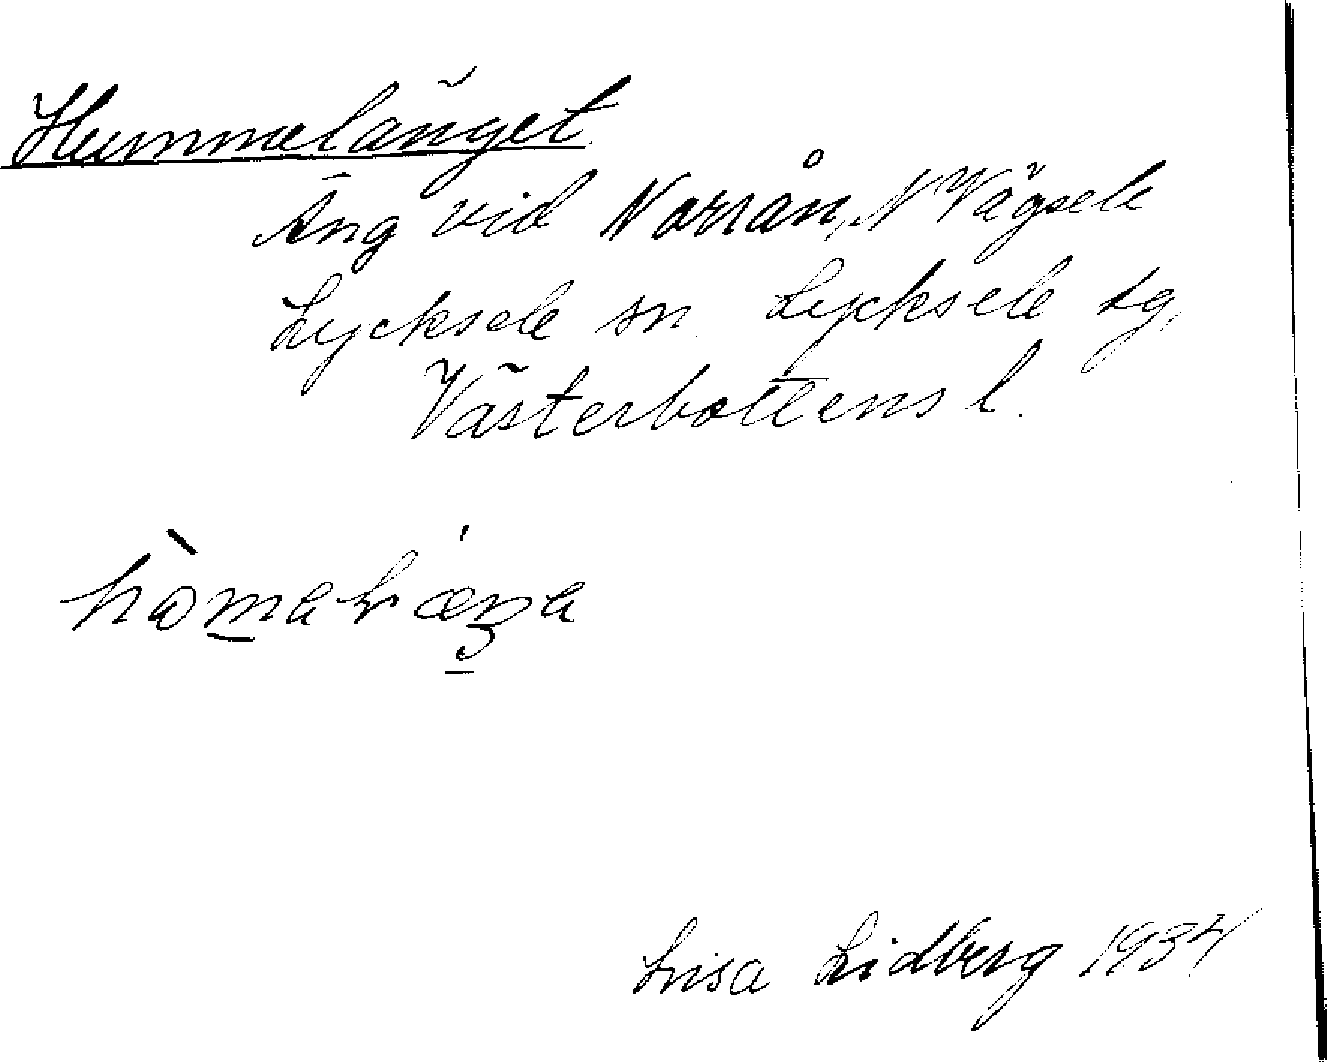 Hummelänget
Äng vid Norrån, N Vägsele
Lycksele sn Lycksele tg,
Västerbottens l.
Lisa Lidberg 1934